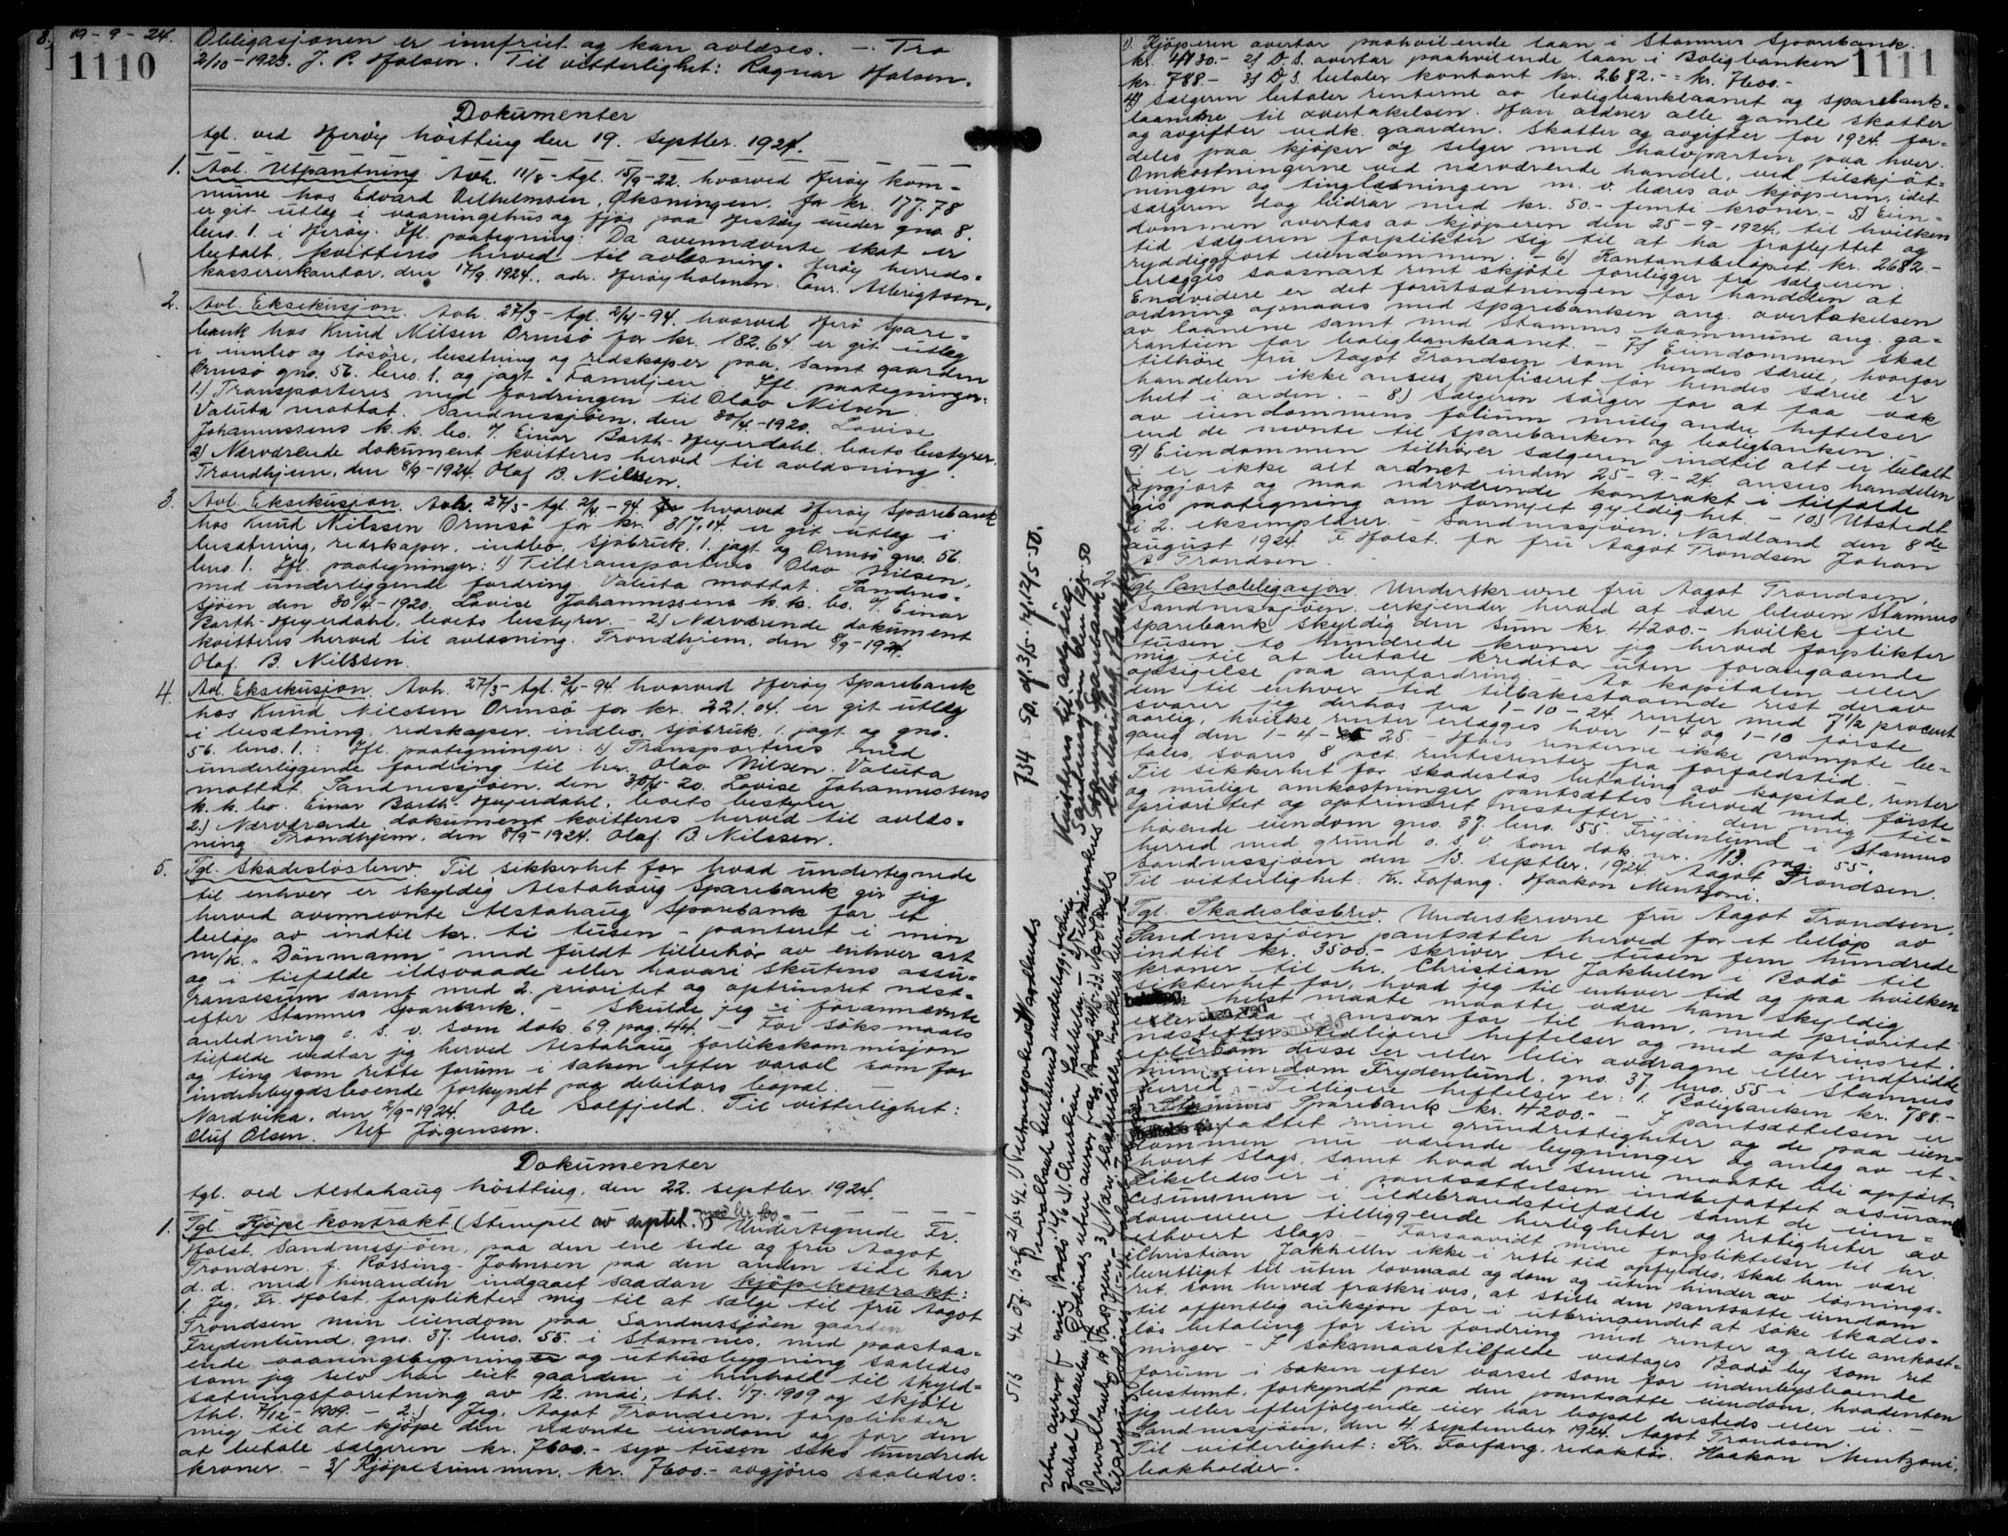 8. 19-9-24. Obligasjonen er innfriet og kan avlæses. – Tro
1110
2/10-1923. J. P. Holsen. Til vitterlighet: Ragnar Holsen.
Dokumenter
tgl. ved Herøy høstting den 19. septbr. 1924.
1. Avl. Utpantning. Avh. 11/8 - tgl. 15/9-22. hvorved Herøy kom-
mune hos Edvard Vilhelmsen, Øksningen for kr. 177.78
er git utlæg i vaaningshus og fjøs paa Hestøy under gno. 8.
bno. 1. i Herøy. Ifl. paategning: Da avennævnte skat er
betalt, kvitteres herved til avlæsning. Herøy herreds-
kassererkontor, den 17/9 1924, adr. Herøyholmen. Conr. Albrigtsen.
2. Avl. Eksekusjon. Avh. 27/3 - tgl. 2/4-94. hvorved Herø Spare-
bank hos Knud Nilsen Ormsø for kr. 182.64 er git utlæg
i innbo og løsøre, besætning og redskaper paa, samt gaarden
Ormsø gno. 56. bno. 1. og jagt "Familjen". Ifl. paategninger:
1.) Transporteres med fordringen til Olav Nilsen.
Valuta mottat. Sandnessjøen, den 30/4-1920. Lovise
Johannessens k.k. bo. v/ Einar Barth-Heyerdahl, boets bestyrer.
2) Nærværende dokument kvitteres herved til avlæsning.
Trondhjem, den 8/9-1924. Olaf B. Nilssen.
3. Avl. Eksekusjon. Avh. 27/3 - tgl. 2/4-94. hvorved Herøy Sparebank
hos Knud Nilssen Ormsø for kr. 317.14. er git utlæg i
besætning, redskaper, indbo, sjøbruk, 1. jagt og Ormsø gno. 56.
bno. 1. Ifl. paategninger: 1) Tiltransporteres Olav Nilsen,
med underliggende fordring. Valuta mottat. Sandnes-
sjøen den 30/4-1920. Lovise Johannessens k.k. bo. v/ Einar
Barth-Heyerdahl, boets bestyrer. – 2) Nærværende dokument
kvitteres herved til avlæsning. Trondhjem, den 8/9-1924.
Olaf. B. Nilssen.
4. Avl. Eksekusjon. Avh. 27/3 - tgl. 2/4-94. hvorved Herøy Sparebank
hos Knud Nilssen Ormsø for kr. 221.04. er git utlæg
i besætning, redskaper, indbo, sjøbruk, 1. jagt og gno.
56. bno. 1.: Ifl. paategninger: 1) Transporteres med
underliggende fordring til hr. Olav Nilsen. Valuta
mottat. Sandnessjøen, den 30/4-20. Lovise Johannessens
k.k. bo. Einar Barth-Heyerdahl, boets bestyrer.
2.) Nærværende dokument kvitteres herved til avlæs-
ning. Trondhjem, den 8/9-1924. Olaf B. Nilssen.
5. Tgl. Skadesløsbrev. Til sikkerhet for hvad undertegnede
til enhver er skyldig Alstahaug Sparebank gir jeg
herved avennævnte Alstahaug Sparebank for et
beløp av indtil kr. ti tusen – panteret i min
m/k. "Dönmann" med fuldt tilbehør av enhver art
og i tilfælde ildsvaade eller havari skutens assu-
ransesum samt med 2. prioritet og optrinsret næst-
efter Stamnes Sparebank. – Skulde jeg i forannævnte
anledning o. s. v. som dok. 69. pag. 44. – For søksmaals
tilfælde vedtar jeg herved Alstahaug forlikskommisjon
og ting som rette forum i saken efter varsel som for
indenbygdsboende forkyndt paa debitors bopæl. –
Nordvika, den 2/9-1924. Ole Solfjeld. Til vitterlighet:
Oluf Olsen. Alf Jørgensen.
Dokumenter
tgl. ved Alstahaug høstting, den 22. septbr. 1924.
1. Tgl. Kjøpekontrakt (Stempel av deptet. Undertegnede Fr.
Holst, Sandnessjøen, paa den ene side og fru Aagot
Trondsen f. Røssing-Johnsen paa den anden side har
d. d. med hinanden indgaaet saadan kjøpekontrakt:
1. Jeg, Fr. Holst, forplikter mig til at sælge til fru Aagot
Trondsen min eiendom paa Sandnessjøen gaarden
Frydenlund, gno. 37. bno. 55. i Stamnes, med paastaa-
ende vaaningsbygning og uthusbygning saaledes
som jeg selv har eiet gaarden i henhold til skyld-
sætningsforretning av 12. mai, thl. 1/7. 1909 og skjøte
thl. 7/12-1909. – 2.) Jeg, Aagot Trondsen, forplikter
mig til at kjøpe den nævnte eiendom og for den
at betale sælgeren kr. 7600.- syv tusen seks hundrede
kroner. – 3) Kjøpesummen, kr. 7600.- avgjøres saaledes:
1111
1). Kjøperen overtar paahvilende laan i Stamnes Sparebank.
kr. 4130.- 2) D.S. overtar paahvilende laan i Boligbanken
kr. 788.- 3) D.S. betaler kontant kr. 2682.- = kr. 7600.-
4) Sælgeren betaler renterne av boligbanklaanet og sparebank-
laanene til overtakelsen. Han ordner alle gamle skatter
og avgifter vedk. gaarden. Skatter og avgifter for 1924 for-
deles paa kjøper og selger med halvparten paa hver.
Omkostningerne ved nærværende handel, ved tilskjøt-
ningen og tinglæsningen m. v. bæres av kjøperen, idet
sælgeren dog bidrar med kr. 50.- femti kroner. – 5) Eien-
dommen overtas av kjøperen den 25-9-1924, til hvilken
tid sælgeren forplikter sig til at ha fraflyttet og
ryddiggjort eiendommen. – 6) Kontantbeløpet kr. 2682.-
erlægges saasnart rent skjøte foreligger fra sælgeren.
Endvidere er det forutsætningen for handelen at
ordning opnaaes med sparebanken ang. overtakelsen
av laanene samt med Stamnes kommune ang. ga-
rantien for boligbanklaanet. – 7) Eiendommen skal
tilhøre fru Aagot Trondsen som hendes særeie, hvorfor
handelen ikke ansees perficeret før hendes særeie er
helt i orden. – 8) Sælgeren sørger for at faa væk
av eiendommens folium mulig andre heftelser
end de nevnte til sparebanken og boligbanken. –
9) Eiendommen tilhører sælgeren indtil alt er betalt
er ikke alt ordnet inden 25-9-24. ansees handelen
opgjort og maa nærværende kontrakt i tilfælde
gis paategning om fornyet gyldighet. – 10) Utstedt
i 2. eksemplarer. – Sandnessjøen, Nordland den 8de
august 1924. F. Holst. for fru Aagot Trondsen Johan
Trondsen.
2. Tgl. Pantobligasjon. Underskrevne fru Aagot Trondsen,
Sandnessjøen, erkjender herved at være bleven Stamnes
sparebank skyldig den sum kr. 4200.- hvilke fire
tusen to hundrede kroner jeg herved forplikter
mig til at betale kreditor uten forangaaende
opsigelse paa anfordring. – Av kapitalen eller
den til enhver tid tilbakestaaende rest derav
svarer jeg derhos fra 1-10-24. renter med 7½ procent
aarlig, hvilke renter erlægges hver 1-4 og 1-10 første
gang den 1-4-25 – Hvis renterne ikke prompte be-
tales, svares 8 pct. rentesrenter fra forfaldstid. –
Til sikkerhet for skadesløs betaling av kapital, renter
og mulige omkostninger pantsættes herved med første
prioritet og optrinsret nestefter ... den mig til-
hørende eiendom gno. 37. bno. 55. Frydenlund i Stamnes
herred med grund o. s. v. som dok. nr. 113. pag. 55.
Sandnessjøen den 13. septbr. 1924. Aagot Trondsen.
Til vitterlighet: Kr. Forfang. Haakon Mentzoni.
Tgl. Skadesløsbrev. Underskrevne fru Aagot Trondsen,
Sandnessjøen pantsætter herved for et beløp av
indtil kr. 3500.- skriver tre tusen fem hundrede
kroner til hr. Christian Jakhelln i Bodø til
sikkerhet for, hvad jeg til enhver tid og paa hvilken
helst maate maatte være ham skyldig
eller ansvar for til ham, med prioritet
næstefter tidligere heftelser og med optrinsret
eftersom disse er eller blir avdragne eller indfridde
min eiendom Frydenlund, gno. 37. bno. 55 i Stamnes
herred – Tidligere heftelser er: 1. Boligbanken kr. 788.-
Stamnes Sparebank kr. 4200.- – I pantsættelsen er
indbefattet mine grundrettigheter og de paa eien-
dommen nu værende bygninger og anlæg av et-
hvert slags, samt hvad der senere maatte bli opført.
Likeledes er i pantsættelsen indbefattet assuran-
cesummen i ildebrandstilfælde samt de eien-
dommen tilliggende herligheter og rettigheter av
ethvert slags. – Forsaavidt mine forpliktelser til hr.
Christian Jakhelln ikke i rette tid opfyldes, skal han være
berettiget til uten lovmaal og dom og uten hinder av løsnings-
ret, som herved fraskrives, at stille den pantsatte eiendom
til offentlig auksjon for i utbringendet at søke skades-
løs betaling for sin fordring med renter og alle omkost-
ninger. – I søksmaalstilfælde vedtages Bodø by som ret
forum i saken efter varsel som for indenbysboende
bestemt, forkyndt paa den pantsatte eiendom, hvadenten
jeg eller efterfølgende eier har bopæl dersteds eller ei. –
Sandnessjøen, den 4. september 1924. Aagot Trondsen.
Til vitterlighet: Kr. Forfang, redaktør. Haakon Mentzoni,
bokholder.